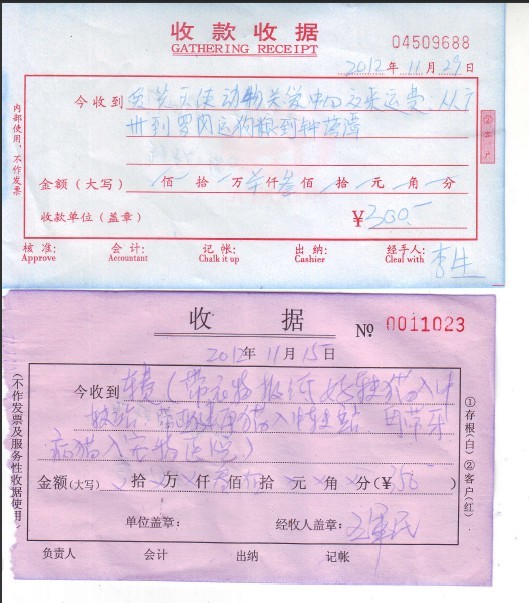 收款收据
GATHERING RECEIPT
04509688
2012年11月29日
今收到 天使动物关爱中心 运费：从广
州到罗冈运狗粮到钟落潭
金额（大写） 佰 拾 万 仟叁佰 拾 元 角 分
收款单位（盖章） ￥300.-
核 准： 会 计： 记 帐： 出 纳： 经手人： 李生
Approve Accountant Chalk it up Cashier Cleal with
内部使用，不作发票
收 据 № 0011023
2012年11月15日
今收到 车费（带 猫入中
转站 猫入中转站 带牙
病猫入宠物医院）
金额(大写) 拾 万 仟 佰 拾 元 角 分(￥350 )
单位盖章： 经收人盖章： 军民
负责人 会计 出纳 记帐
(不作发票及服务性收据使用)
①存根(白)②客户(红)